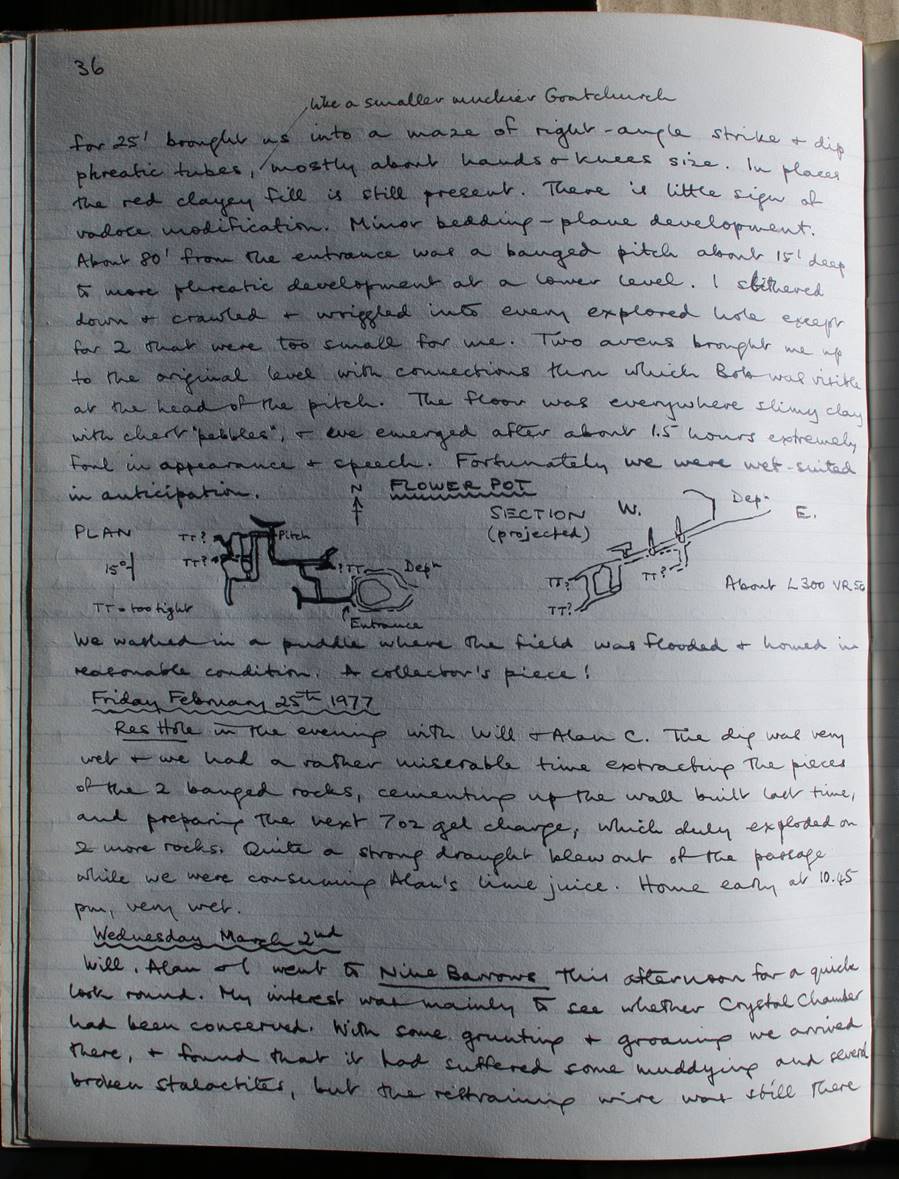 36
like a smaller muckier Goatchurch
for 25' brought us into a maze of right-angle strike + dip
phreatic tubes, mostly about hands + knees size. In places
the red clayey fill is still present. There is little sign of
vadose modification. Minor bedding-plane development.
About 80' from the entrance was a banged pitch about 15' deep
to more phreatic development at a lower level. I slithered
down + crawled + wriggled into every explored hole except
for 2 that were too small for me. Two avens brought me up
to the original level with connections thru which Bob was visible
at the head of the pitch. The floor was everywhere slimy clay
with chert "pebbles", + we emerged after about 1.5 hours extremely
foul in appearance + speech. Fortunately we were wet-suited
in anticipation.
N
FLOWER POT
PLAN
TT?
Pitch
TT?
15°
?TT
Depn
TT = too tight
Entrance
SECTION
(projected)
W.
Depn
E.
TT?
TT?
TT?
About L300 VR50
We washed in a puddle where the field was flooded + homed in
reasonable condition. A collector's piece!
Friday February 25th 1977
Res Hole in the evening with Will + Alan C. The dig was very
wet + we had a rather miserable time extracting the pieces
of the 2 banged rocks, cementing up the wall built last time,
and preparing the next 7oz gel charge, which duly exploded on
2 more rocks. Quite a strong draught blew out of the passage
while we were consuming Alan's lime juice. Home early at 10.45
pm, very wet.
Wednesday March 2nd
Will, Alan + I went to Nine Barrows this afternoon for a quick
look round. My interest was mainly to see whether Crystal Chamber
had been conserved. With some grunting + groaning we arrived
there, + found that it had suffered some muddying and several
broken stalactites, but the restraining wire was still there